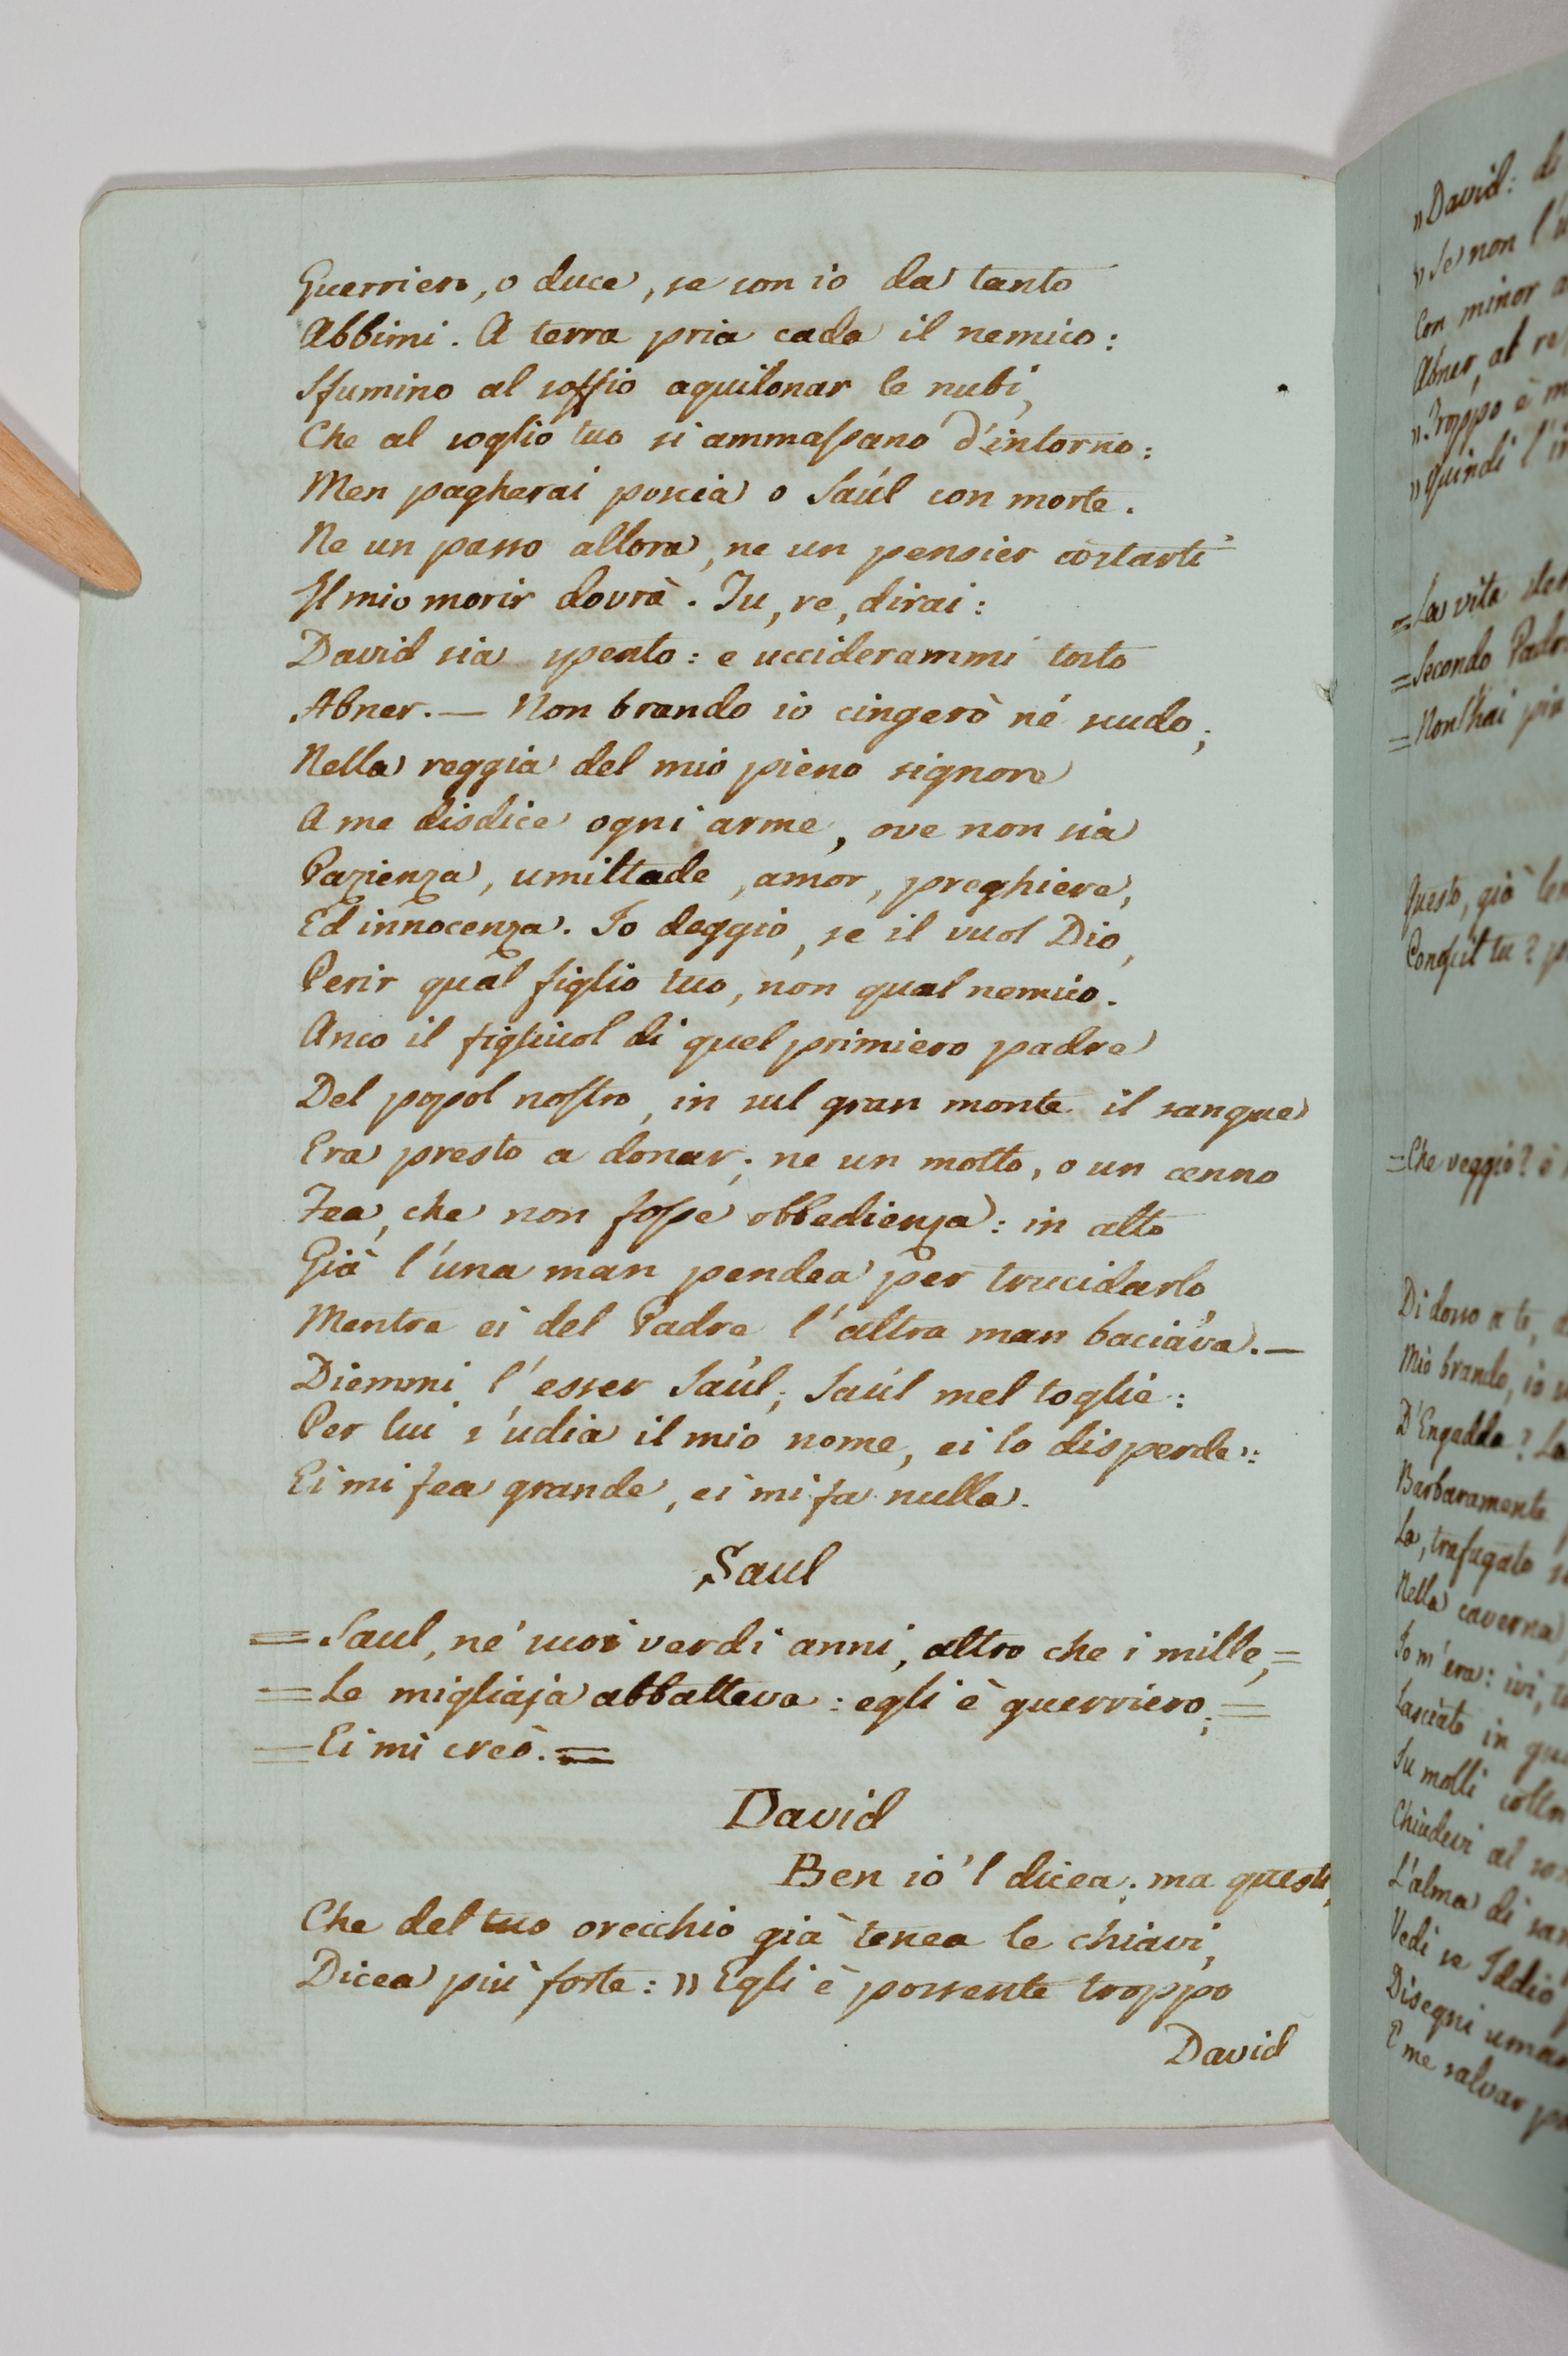 Guerriero, o duce, se son io da tanto
Abbimi. A terra pria cada il nemico:
Sfumino al soffio aquilonar le nubi,
Che al soglio tuo si ammassano d'intorno:
Men pagherai poscia o Saúl con morte.
Ne un passo allora, ne un pensier costarti
Il mio morir dovrà. Tu, re, dirai:
David sia spento: e ucciderammi tosto
Abner. — Non brando io cingerò né scudo;
Nella reggia del mio pieno signore
A me disdice ogni arme, ove non sia
Pazienza, umiltade, amor, preghiere,
Ed innocenza. Io deggio, se il vuol Dio,
Perir qual figlio tuo, non qual nemico.
Anco il figliuol di quel primiero padre
Del popol nostro, in sul gran monte il sangue
Era presto a donar; ne un motto, o un cenno
Fea, che non fosse obbedienza: in alto
Già l'una man pendea per trucidarlo,
Mentre ei del Padre l'altra man baciava. —
Diemmi l'esser Saúl; Saúl mel toglie:
Per lui s'udia il mio nome, ei lo disperde:
Ei mi fea grande, ei mi fa nulla.
Saul
= Saul, ne' suoi verdi anni, altro che i mille, =
= Le migliaja abbatteva: egli è guerriero; =
= Ei mi creò. =
David
Ben io 'l dicea; ma questi,
Che del tuo orecchio già tenea le chiavi,
Dicea più forte: » Egli è possente troppo
David
» David: di
» Se non l'
Con minor
Abner, al re
» Troppo è
» Quindi l'
= La vita
= Secondo
= Non l'hai più
Questo, già
Con quel tu?
= Che veggio? è
Di dosso a te,
Mio brando, io
D'Engadda? La
Barbaramente
La, trafugato
Nella caverna
Io m'era: ivi,
Lasciato in
Su molli
Chiudevi al
L'alma di
Vedi se Iddio
Disegni
E me salvar